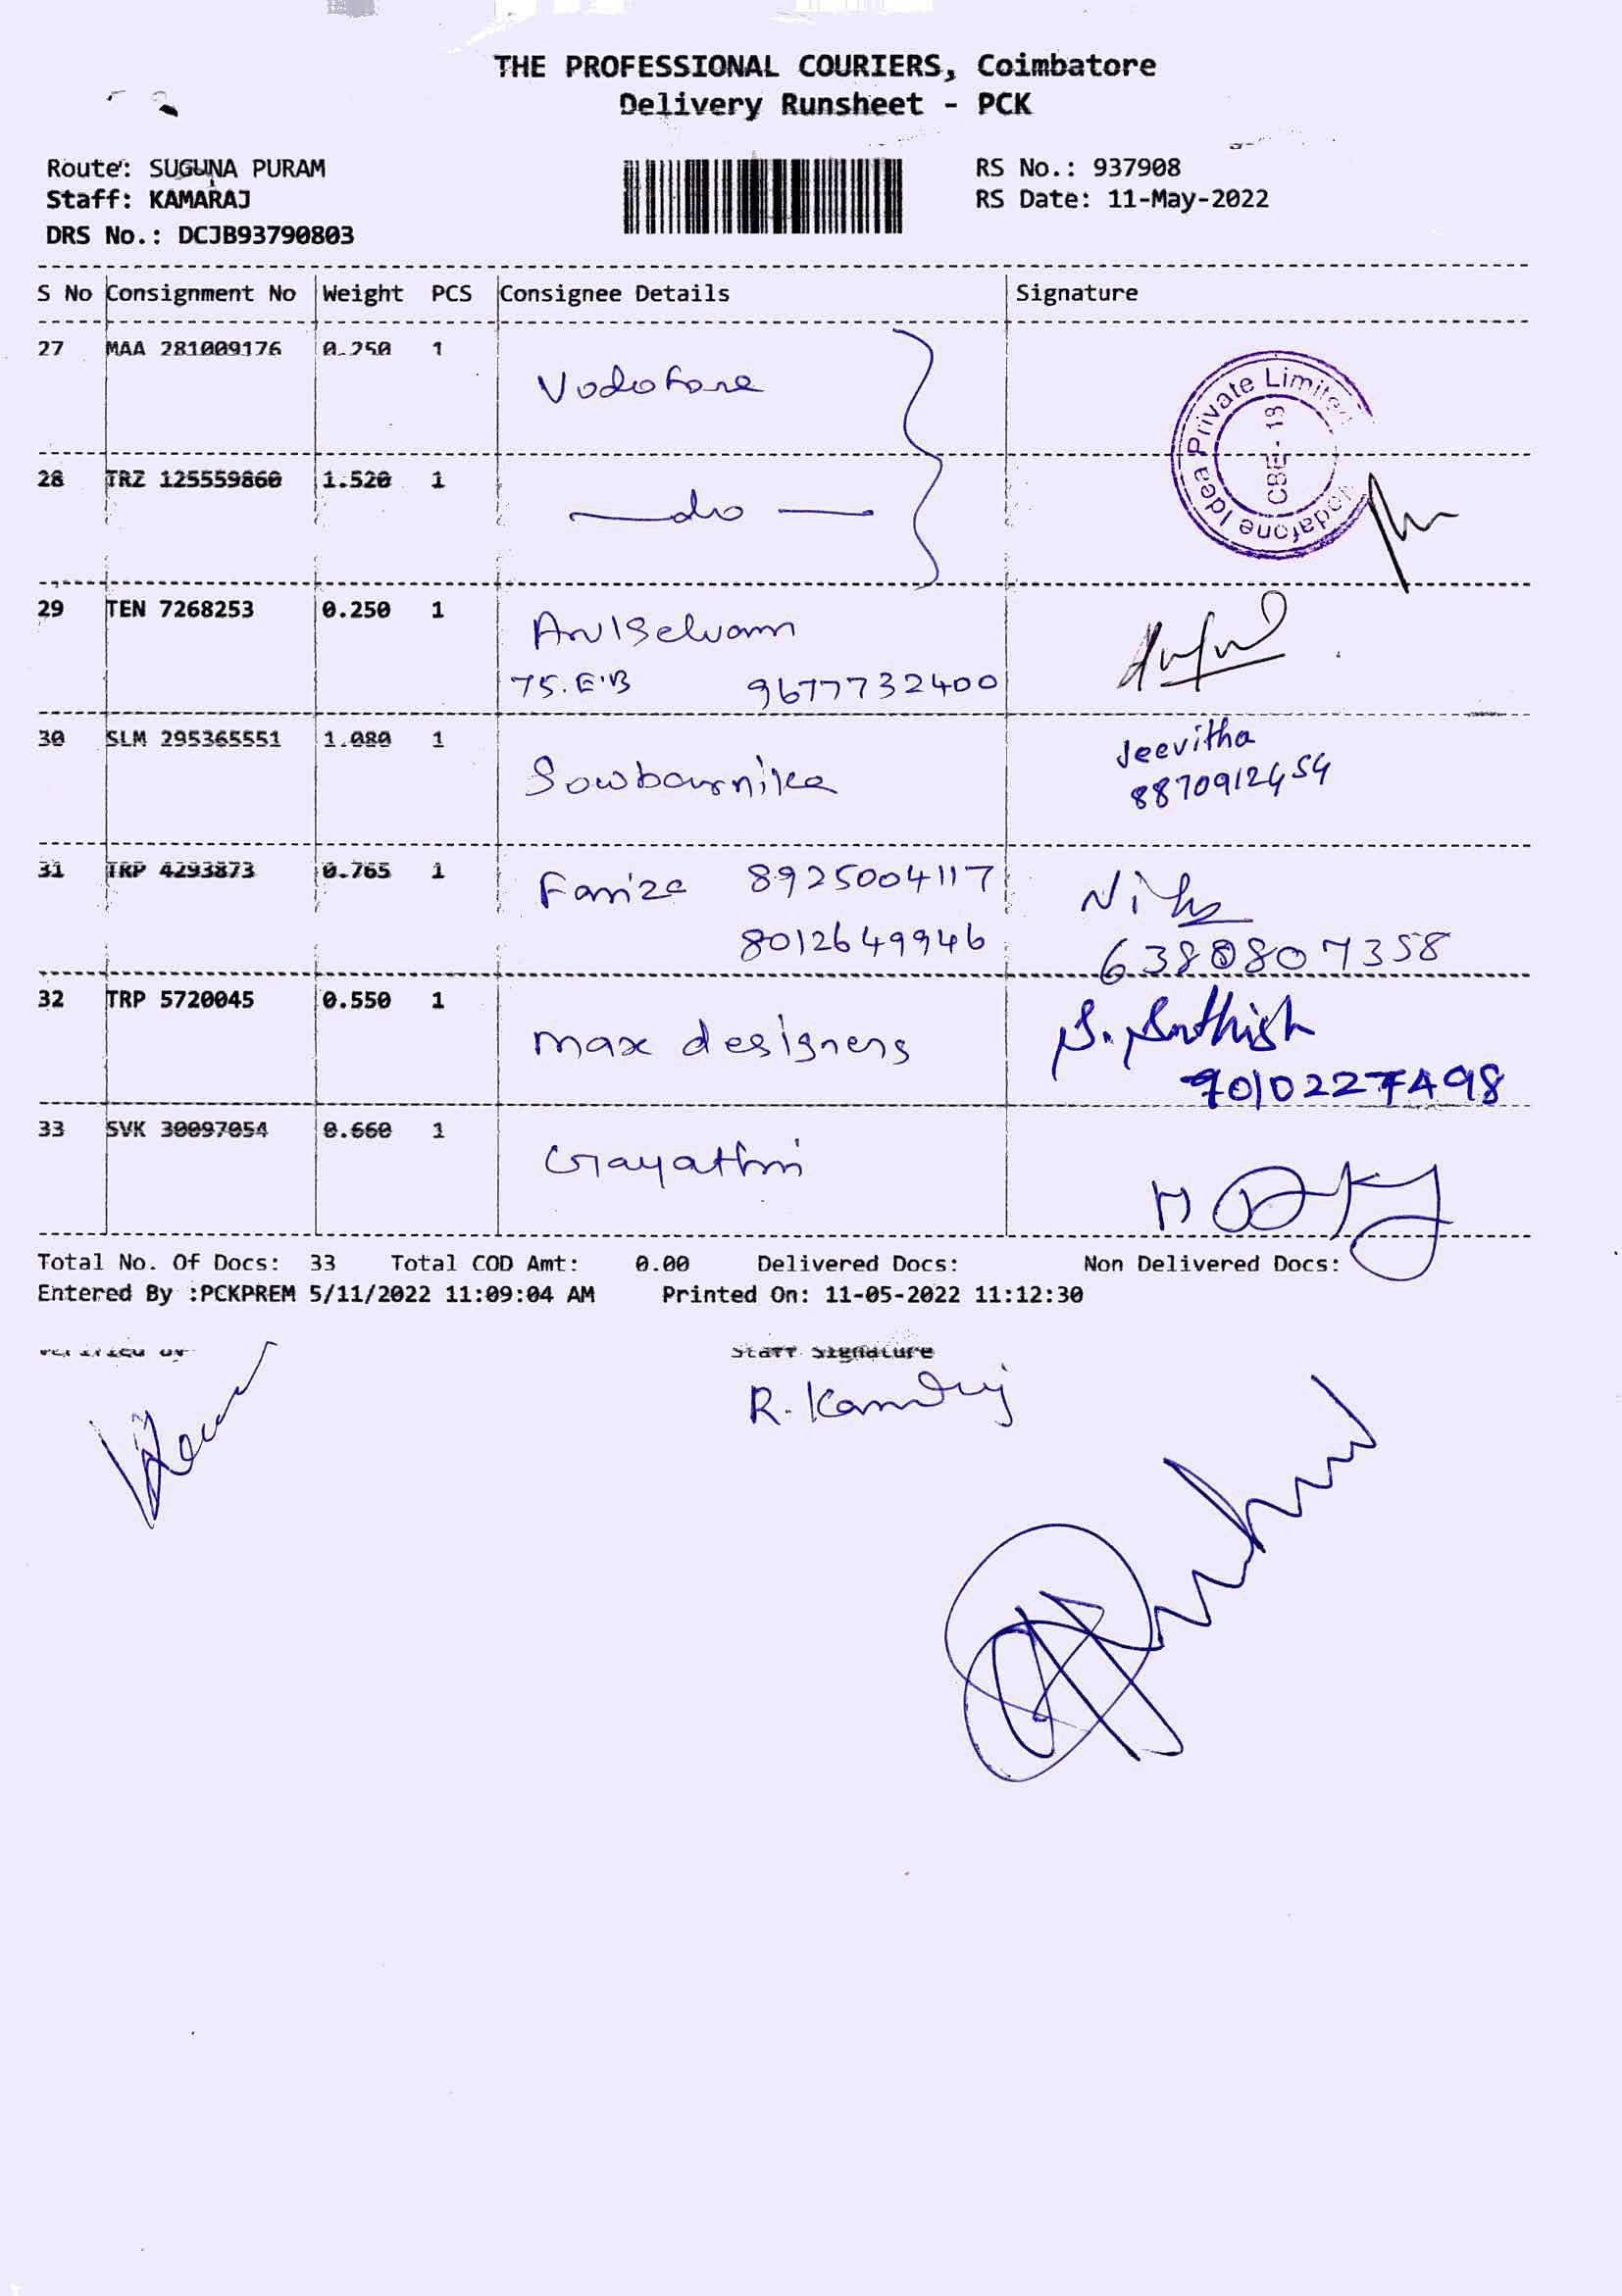 THE PROFESSIONAL COURIERS, Coimbatore
Delivery Runsheet - PCK
Route: SUGUNA PURAM
Staff: KAMARAJ
DRS No.: DCJB93790803
RS No.: 937908
RS Date: 11-May-2022
S No Consignment No Weight PCS Consignee Details Signature
27 MAA 281009176 0.250 1 Vodofone
Vodafone Idea Private Limited
CBE - 13
28 TRZ 125559860 1.520 1 do
29 TEN 7268253 0.250 1 Arulselvam
75.E.B 9677732400
30 SLM 295365551 1.080 1 Sowbarnika Jeevitha
8870912454
31 TRP 4293873 0.765 1 Fariza 8925004117
8012649946
32 TRP 5720045 0.550 1 max designers
33 SVK 30097054 0.660 1 Gayathri
Total No. Of Docs: 33 Total COD Amt: 0.00 Delivered Docs: Non Delivered Docs:
Entered By :PCKPREM 5/11/2022 11:09:04 AM Printed On: 11-05-2022 11:12:30
Verified By Staff Signature